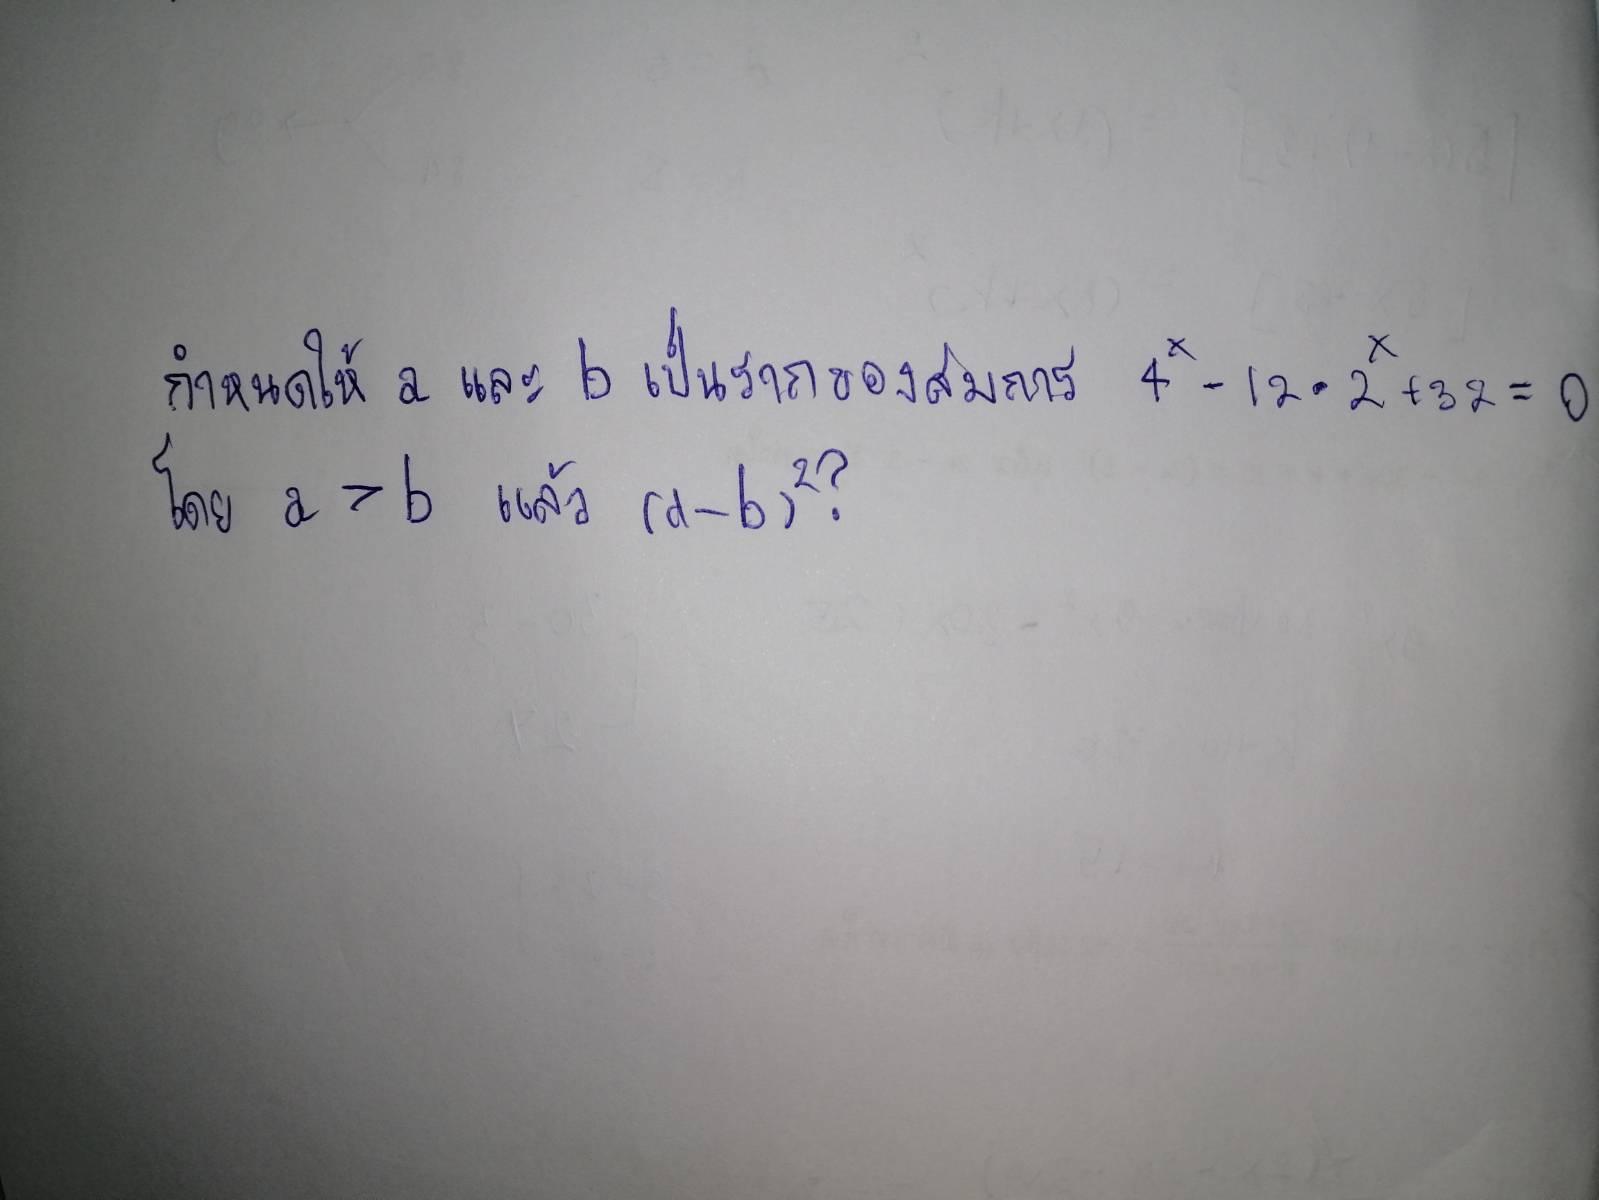 กำหนดให้ a และ b เป็นรากของสมการ 4^x - 12 · 2^x + 32 = 0
โดย a > b แล้ว (a - b)^2 ?